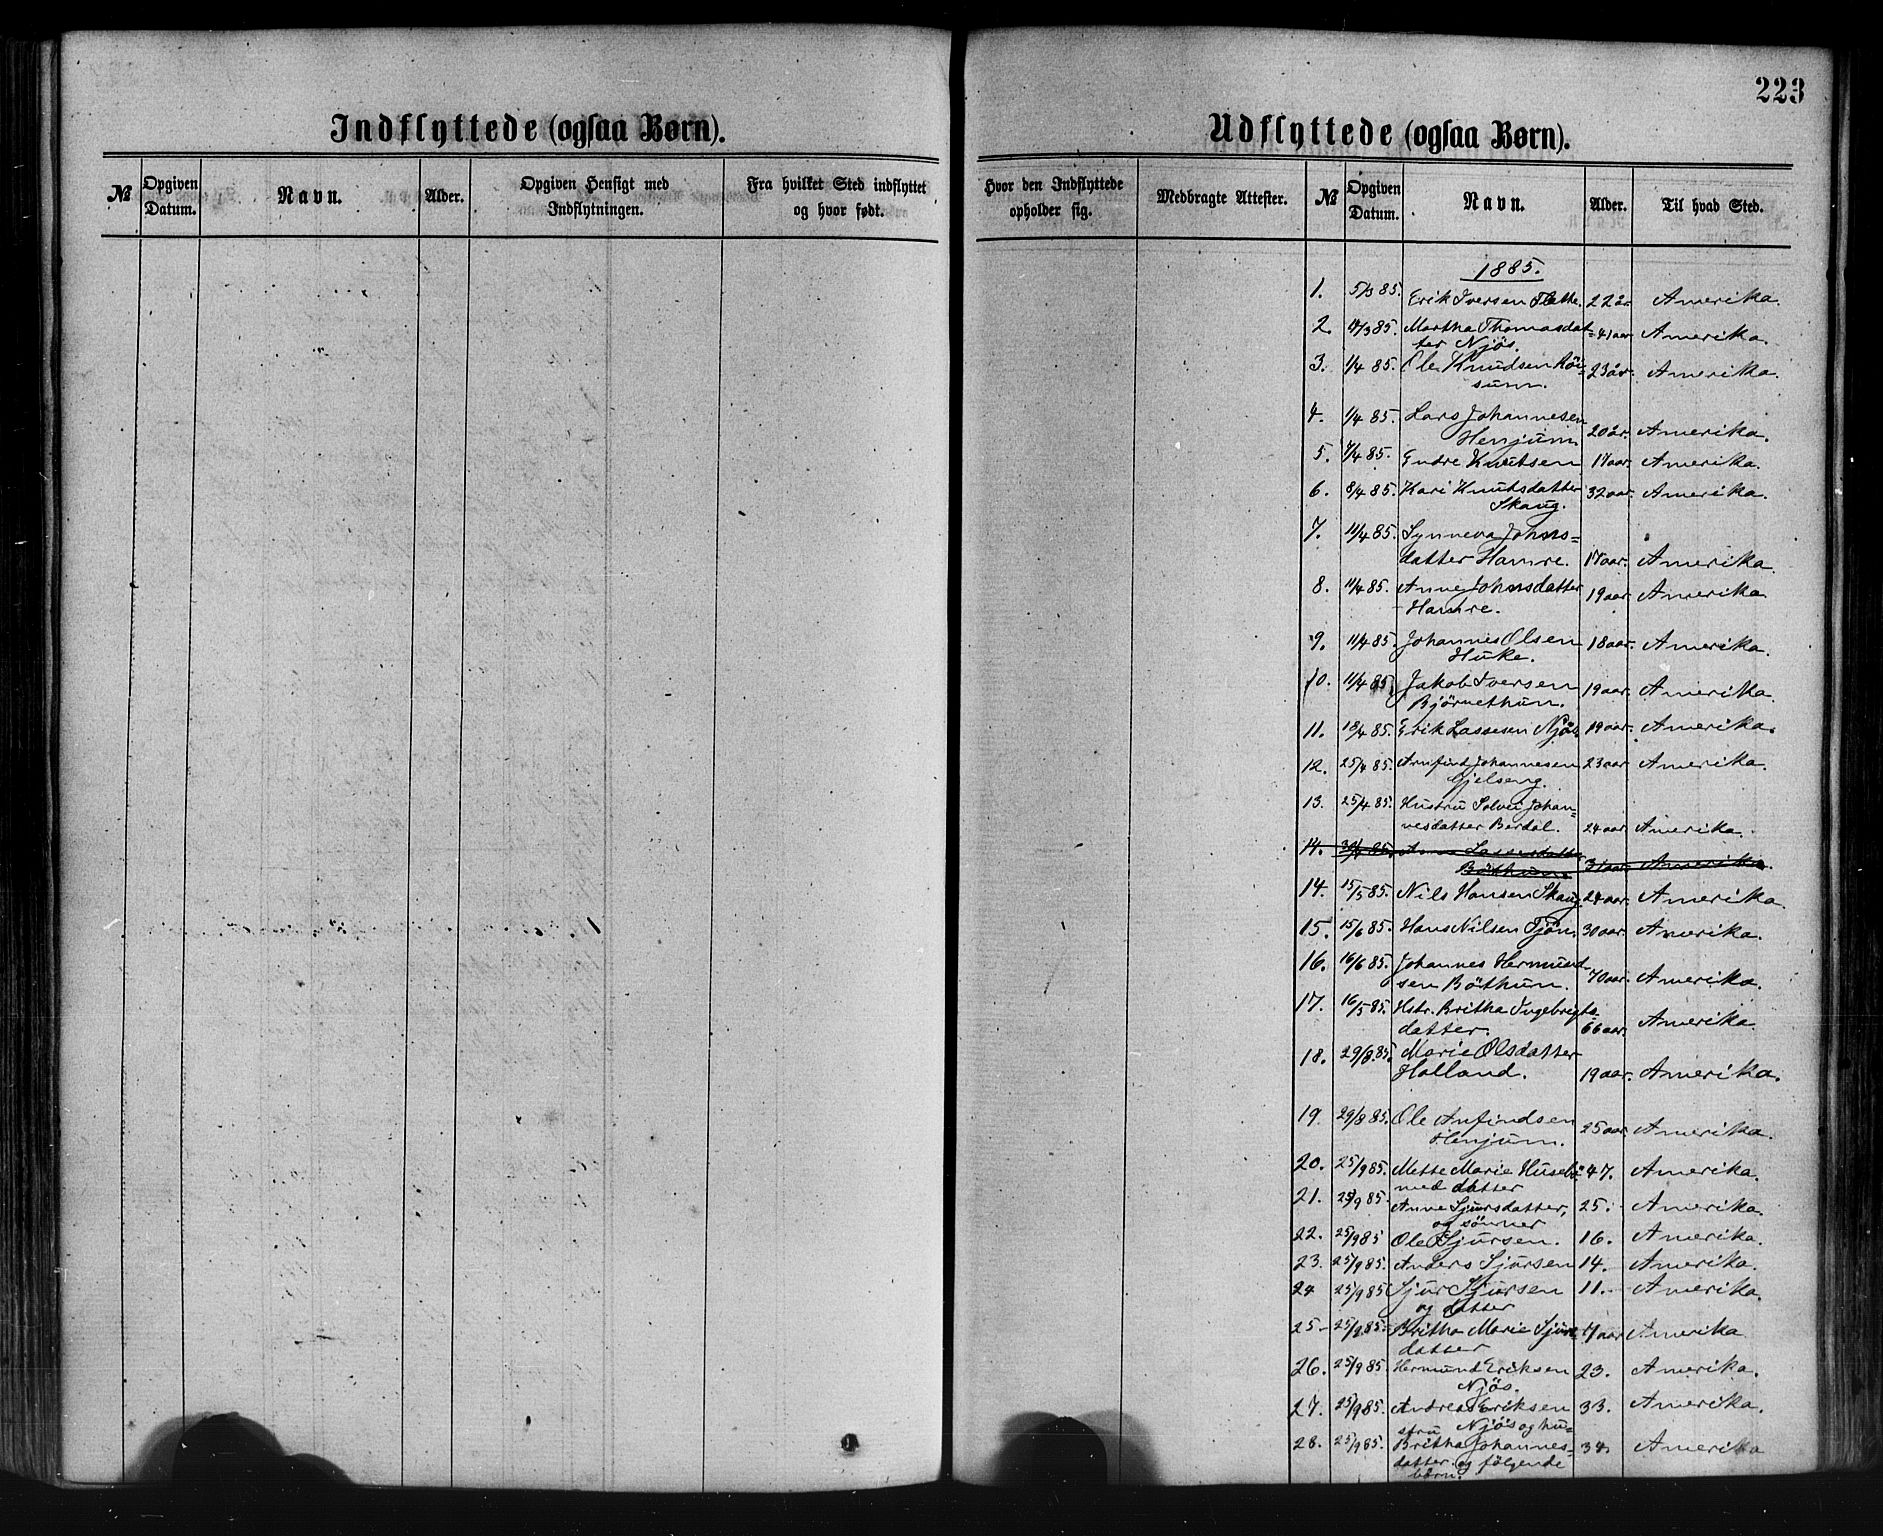 223
Indflyttede (ogsaa Børn).
Udflyttede (ogsaa Børn).
№ Opgiven Datum. Navn. Alder. Opgiven Hensigt med Indflytningen. Fra hvilket Sted indflyttet og hvor født.
Hvor den Indflyttede opholder sig. Medbragte Attester. № Opgiven Datum. Navn. Alder. Til hvad Sted.
1885.
1. 5/3 85. Erik Iversen Flethe. 22 år. Amerika.
2. 17/3 85. Martha Thomasdat= 41 aar Amerika.
ter Njøs.
3. 1/4 85. Ole Knudsen Röi= 23 år. Amerika.
sum.
4. 1/4 85. Lars Johannesen
Henjum. 20 år. Amerika.
5. 7/4 85. Endre Knutsen 17 aar. Amerika.
6. 8/4 85. Kari Knutsdatter 32 aar. Amerika.
Skaug.
7. 11/4 85. Synneva Johns=
datter Hamre. 17 aar. Amerika.
8. 11/4 85. Anne Johnsdatter 19 aar. Amerika
Hamre.
9. 11/4 85. Johannes Olsen 18 aar. Amerika.
Huke.
10. 11/4 85. Jakob Iversen 19 aar. Amerika.
Björnethun.
11. 18/4 85. Erik Lassesen Njös. 19 aar. Amerika.
12. 25/4 85. Arnfind Johannesen 23 aar Amerika.
Gjelseng.
13. 25/4 85. Hustru Solvei Johan=
nesdatter Berdal. 24 aar Amerika.
14. 30/4 85. Lassesdatter
Böthun 31 aar. Amerika.
14. 15/5 85. Nils Hansen Skaug. 24 aar. Amerika.
15. 15/6 85. Hans Nilsen Tjön. 30 aar. Amerika.
16. 16/6 85. Johannes Hermund=
sen Böthun. 70 aar. Amerika.
17. 16/5 85. Hstr. Britha Ingebrigts
datter. 66 aar. Amerika.
18. 29/8 85. Marie Olsdatter
Holland. 19 aar. Amerika.
19. 29/8 85. Ole Anfindsen 25 aar Amerika.
Henjum.
20. 25/9 85. Mette Marie Husebö 47. Amerika.
med datter
21. 25/9 85. Anne Sjursdatter, 25. Amerika.
og sönner
22. 25/9 85 Ole Sjursen. 16. Amerika.
23. 25/9 85. Anders Sjursen 14. Amerika.
24 25/9 85 Sjur Sjursen 11. Amerika.
og datter
25- 25/9 85. Britha Marie Sjurs 4 aar Amerika
datter
26. 25/9 85 Hermund Eriksen 23. Amerika.
Njös.
27. 25/9 85. Andreas Eriksen 33. Amerika.
Njös og hu=
stru
28. 25/9 85. Britha Johannes= 34. Amerika
datter. og fölgende
börn.